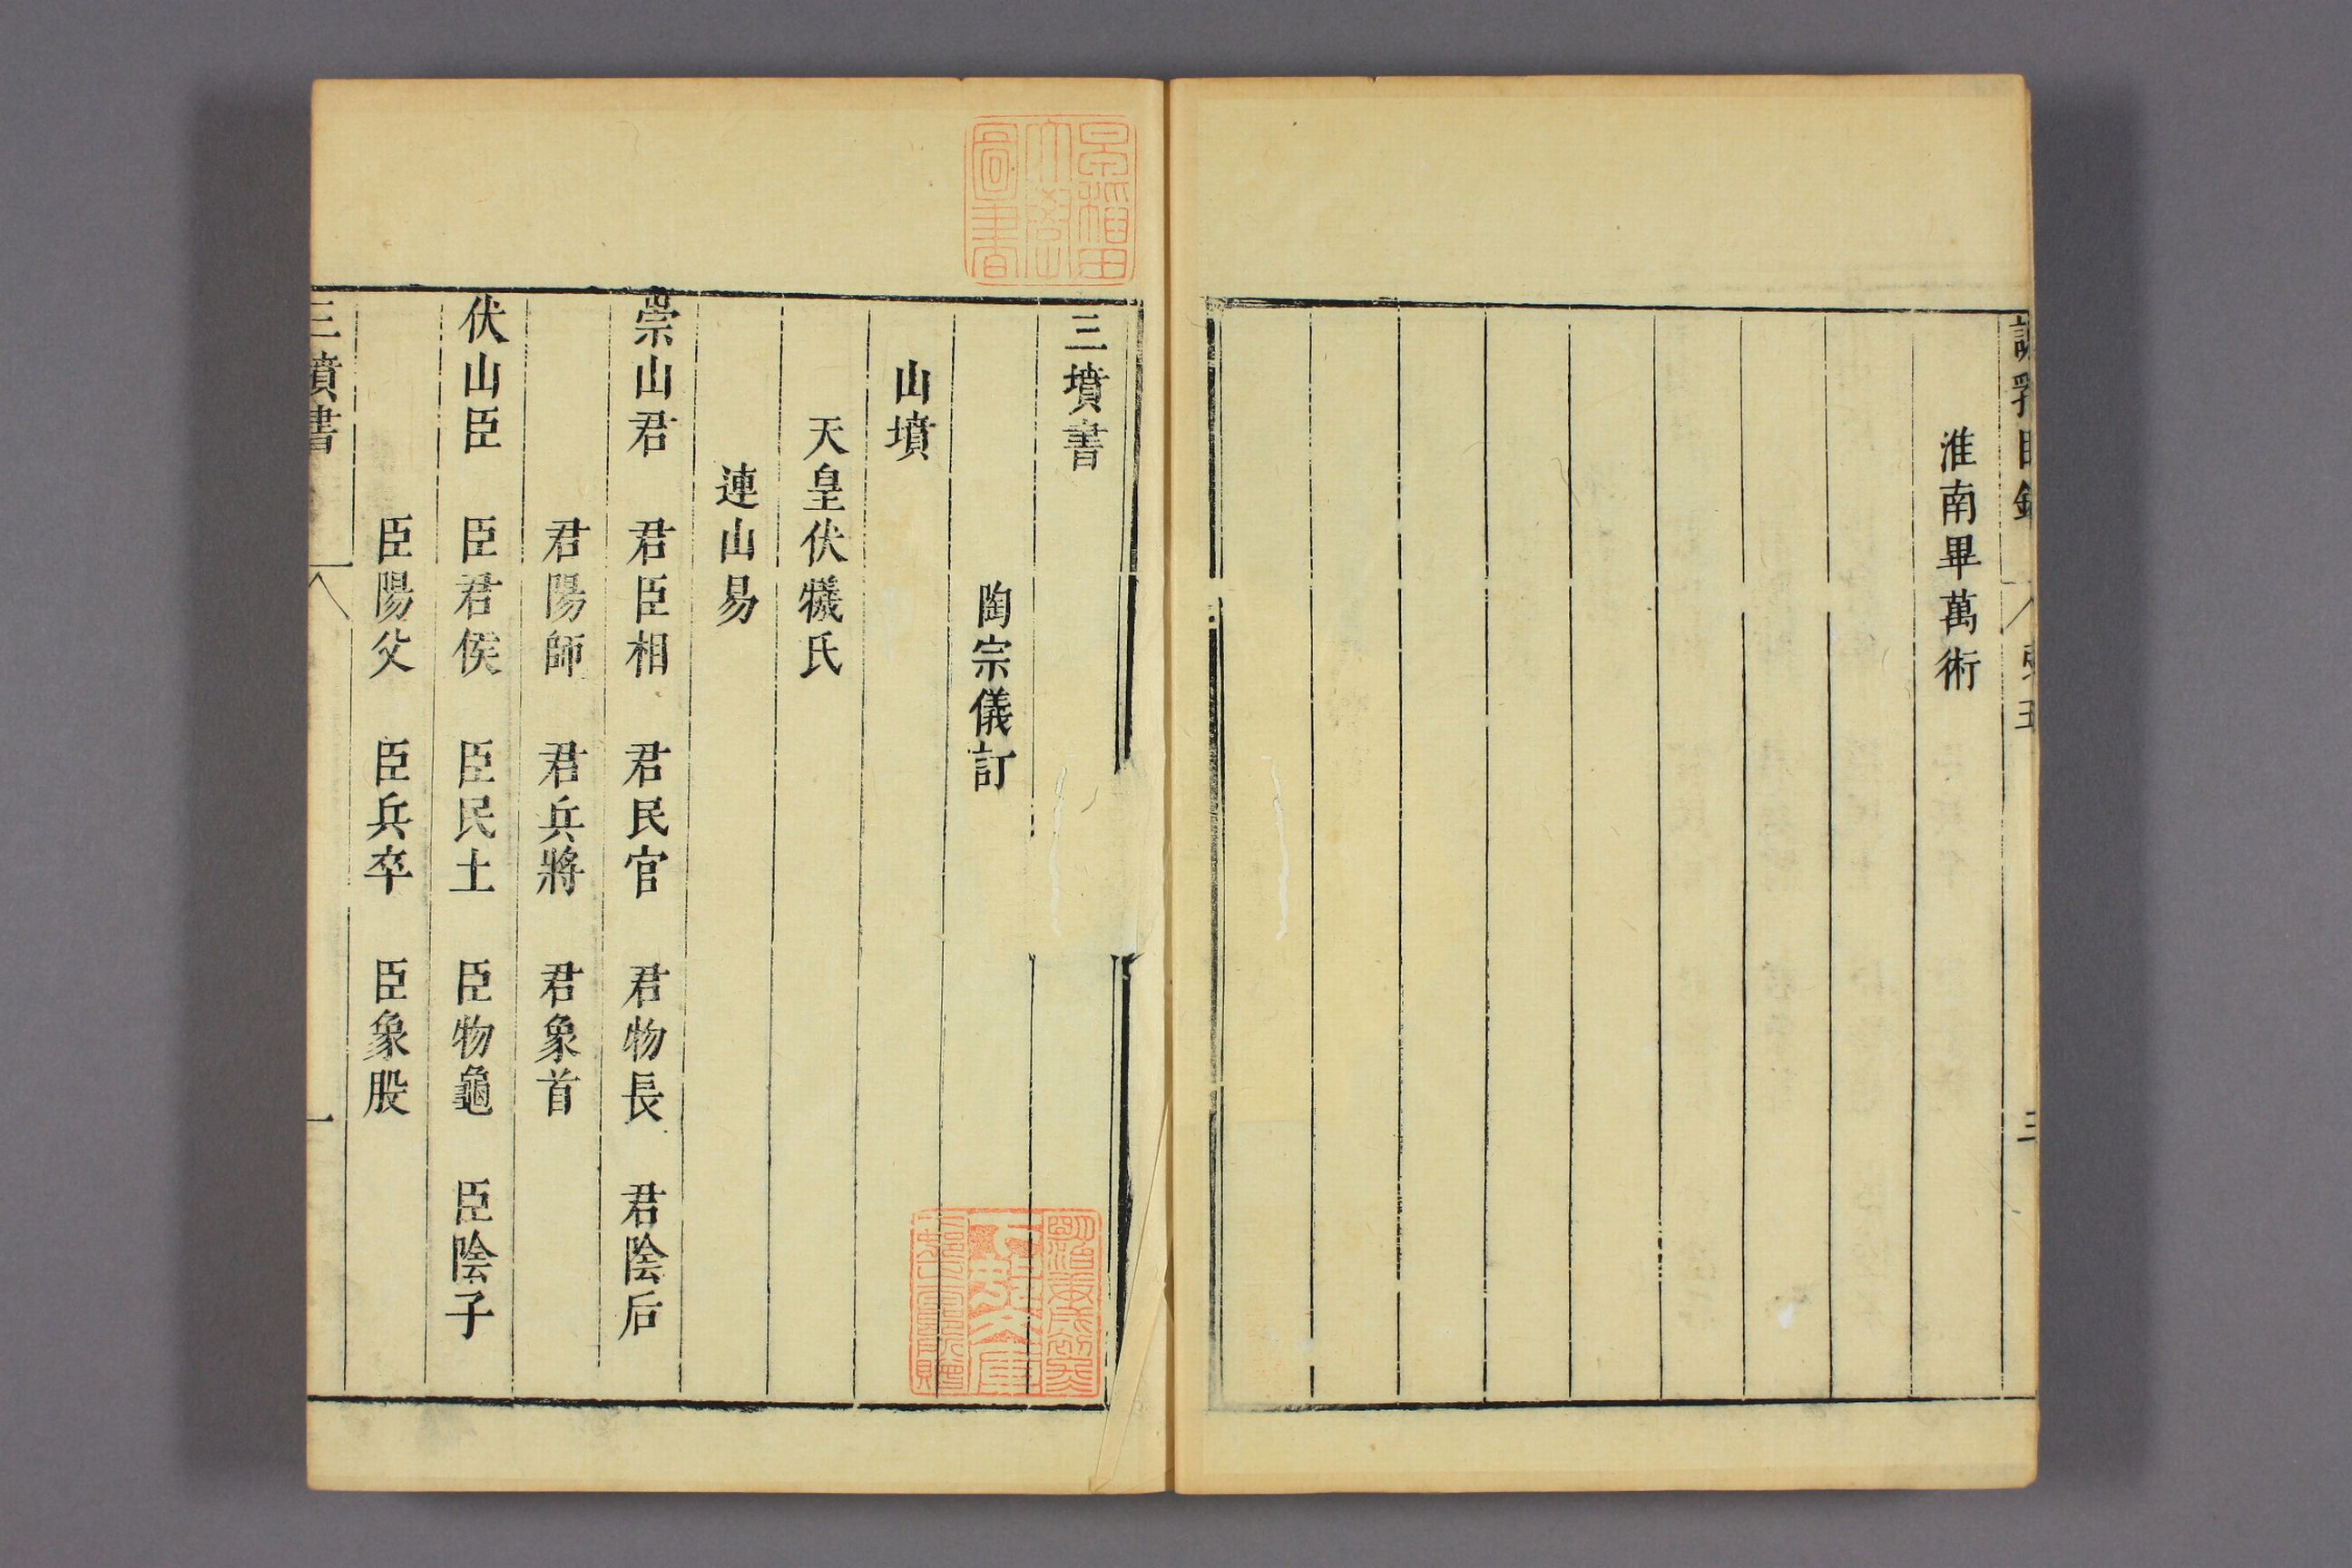 淮南畢萬術
三墳書
陶宗儀訂
山墳
天皇伏犧氏
連山易
崇山君　君臣相　君民官　君物長　君陰后
君陽師　君兵將　君象首
伏山臣　臣君侯　臣民土　臣物龜　臣陰子
臣陽父　臣兵卒　臣象股
三墳書　一
早稲田大學圖書